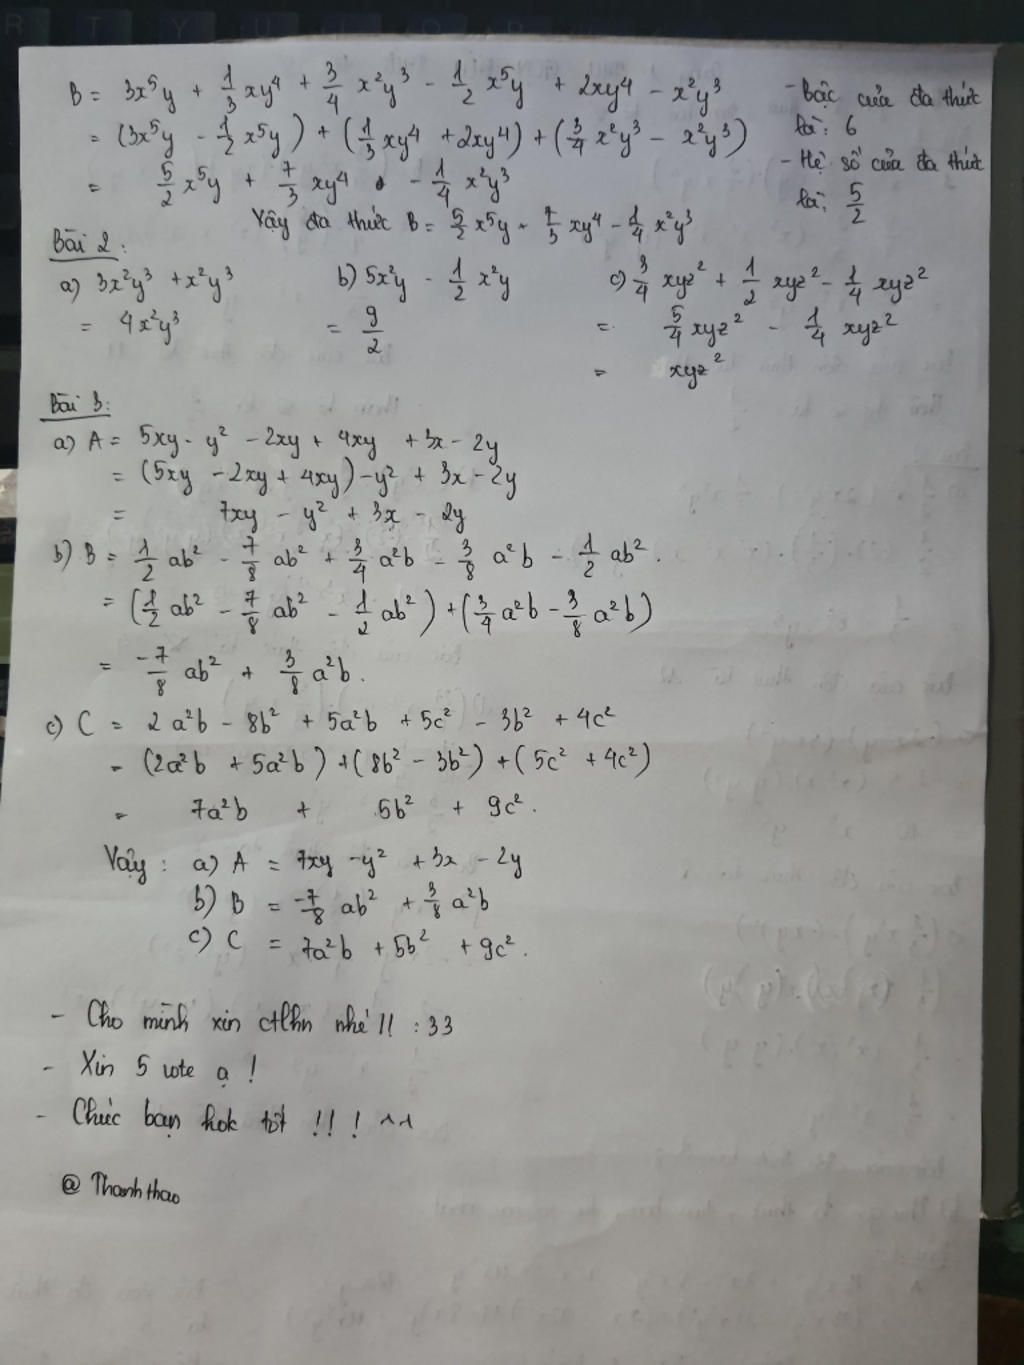 B = 3x⁵y + 1/3 xy⁴ + 3/4 x²y³ - 1/2 x⁵y + 2xy⁴ - x²y³
= (3x⁵y - 1/2 x⁵y) + (1/3 xy⁴ + 2xy⁴) + (3/4 x²y³ - x²y³)
= 5/2 x⁵y + 7/3 xy⁴ - 1/4 x²y³
Vậy đa thức B = 5/2 x⁵y - 7/3 xy⁴ - 1/4 x²y³
- Bậc của đa thức
là: 6
- Hệ số của đa thức
là: 5/2
Bài 2:
a) 3x²y³ + x²y³
= 4x²y³
b) 5x²y - 1/2 x²y
= 9/2
c) 3/4 xyz² + 1/2 xyz² - 1/4 xyz²
= 5/4 xyz² - 1/4 xyz²
= xyz²
Bài 3:
a) A = 5xy - y² - 2xy + 4xy + 3x - 2y
= (5xy - 2xy + 4xy) - y² + 3x - 2y
= 7xy - y² + 3x - 2y
b) B = 1/2 ab² - 7/8 ab² + 3/4 a²b - 3/8 a²b - 1/2 ab².
= (1/2 ab² - 7/8 ab² - 1/2 ab²) + (3/4 a²b - 3/8 a²b)
= -7/8 ab² + 3/8 a²b.
c) C = 2a²b - 8b² + 5a²b + 5c² - 3b² + 4c²
= (2a²b + 5a²b) + (8b² - 3b²) + (5c² + 4c²)
= 7a²b + 5b² + 9c².
Vậy: a) A = 7xy - y² + 3x - 2y
b) B = -7/8 ab² + 3/8 a²b
c) C = 7a²b + 5b² + 9c².
- Cho mình xin ctlhn nhé!! :33
- Xin 5 vote ạ!
- Chúc bạn hok tốt !!! ^^
@ Thanhthao